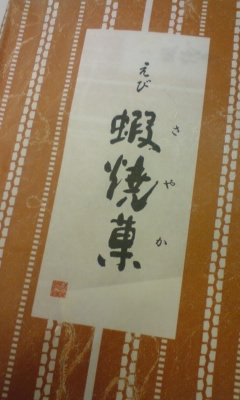 えび
さやか
蝦焼菓